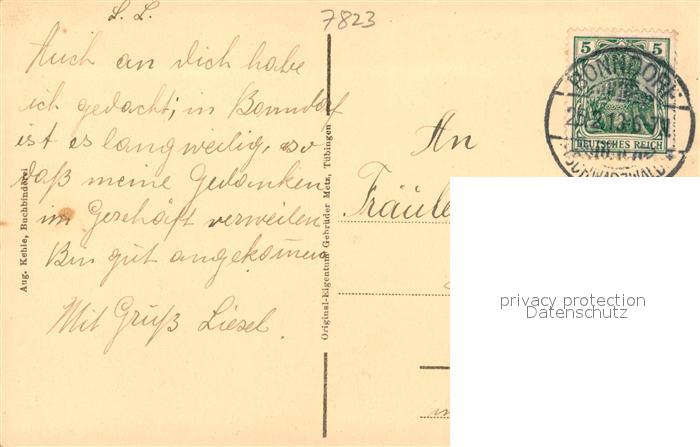 L. L.
7823
Auch an dich habe
ich gedacht; in Bonndorf
ist es langweilig, so
daß meine Gedanken
im Geschäft verweilen
Bin gut angekommen
Mit Gruß Liesel.
Aug. Kehle, Buchbinderei
Original-Eigentum Gebrüder Metz, Tübingen
An
Fräule
5 5
DEUTSCHES REICH
BONNDORF
(SCHWARZWALD)
privacy protection
Datenschutz